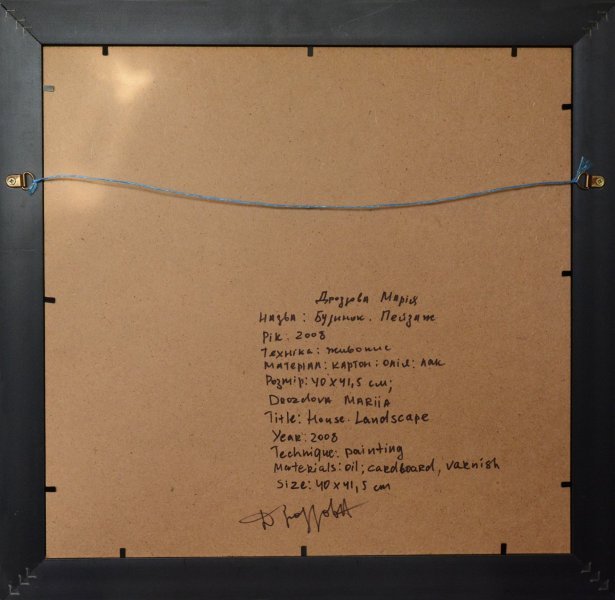 Дроздова Марія
Назва: Будинок. Пейзаж
Рік: 2008
Техніка: живопис
Матеріал: картон: олія: лак
Розмір: 40х41,5 см;
Drozdova Mariia
Title: House. Landscape
Year: 2008
Technique: painting
Materials: oil; cardboard, varnish
Size: 40x41,5 cm
Дроздова